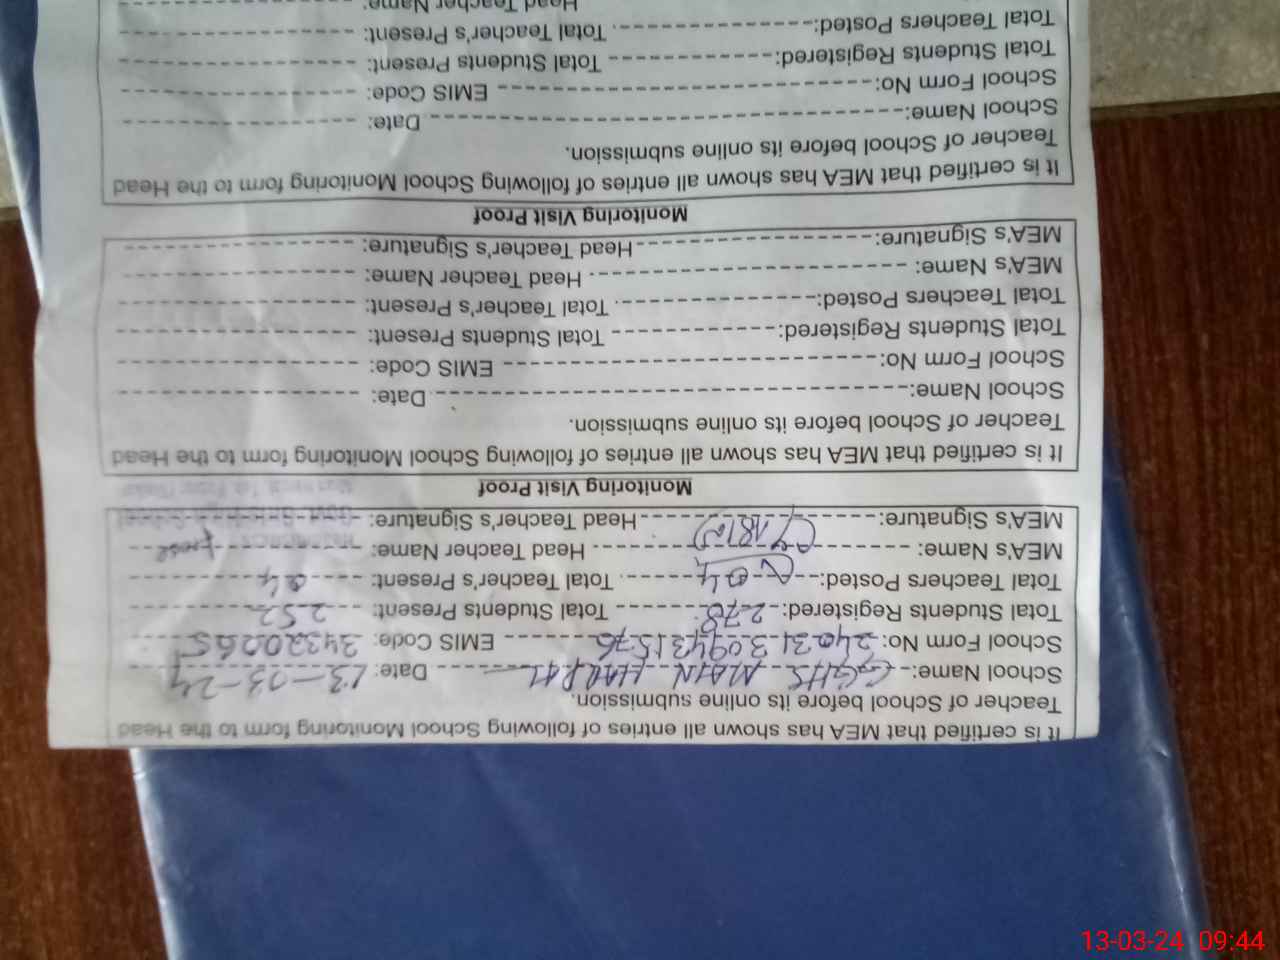 It is certified that MEA has shown all entries of following School Monitoring form to the Head
Teacher of School before its online submission.
School Name: GGHS MAIN HARPAL Date: 13-03-24
School Form No: EMIS Code: 34320065
Total Students Registered: 278 Total Students Present: 252
Total Teachers Posted: 04 Total Teacher's Present: 04
MEA's Name: Head Teacher Name:
MEA's Signature: Head Teacher's Signature:
Monitoring Visit Proof
It is certified that MEA has shown all entries of following School Monitoring form to the Head
Teacher of School before its online submission.
School Name: Date:
School Form No: EMIS Code:
Total Students Registered: Total Students Present:
Total Teachers Posted: Total Teacher's Present:
MEA's Name: Head Teacher Name:
MEA's Signature: Head Teacher's Signature:
Monitoring Visit Proof
It is certified that MEA has shown all entries of following School Monitoring form to the Head
Teacher of School before its online submission.
School Name: Date:
School Form No: EMIS Code:
Total Students Registered: Total Students Present:
Total Teachers Posted: Total Teacher's Present:
Head Teacher Name:
13-03-24 09:44